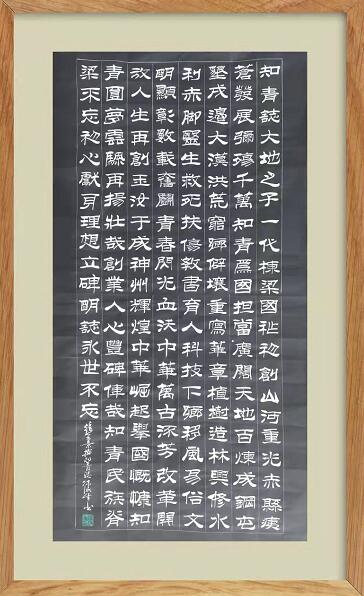 知青誌大地之子一代棟梁國初創山河重光赤縣痍
蒼發展千萬知青爲國担當廣闊天地百煉成鋼屯
墾戍邊大漠洪荒窮鄉僻壤重寫華章植樹造林興修水
利赤脚醫生救死扶傷教書育人科技下鄉移風易俗文
明顯彰數載奮鬭青春閃光血沃中華萬古流芳改革開
放人生再創玉汝于成神州輝煌中華崛起舉國慨慷知
青圓夢雲再揚壯哉創業人心豐碑偉哉知青民族脊
梁不忘初心獻身理想立碑明誌永世不忘